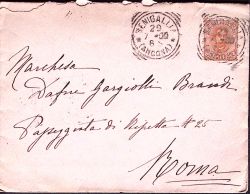 SENIGALLIA
29
7-00
(ANCONA)
Marchesa
Dafne Gargiolli Brandi
Passeggiata di Ripetta N 25
Roma